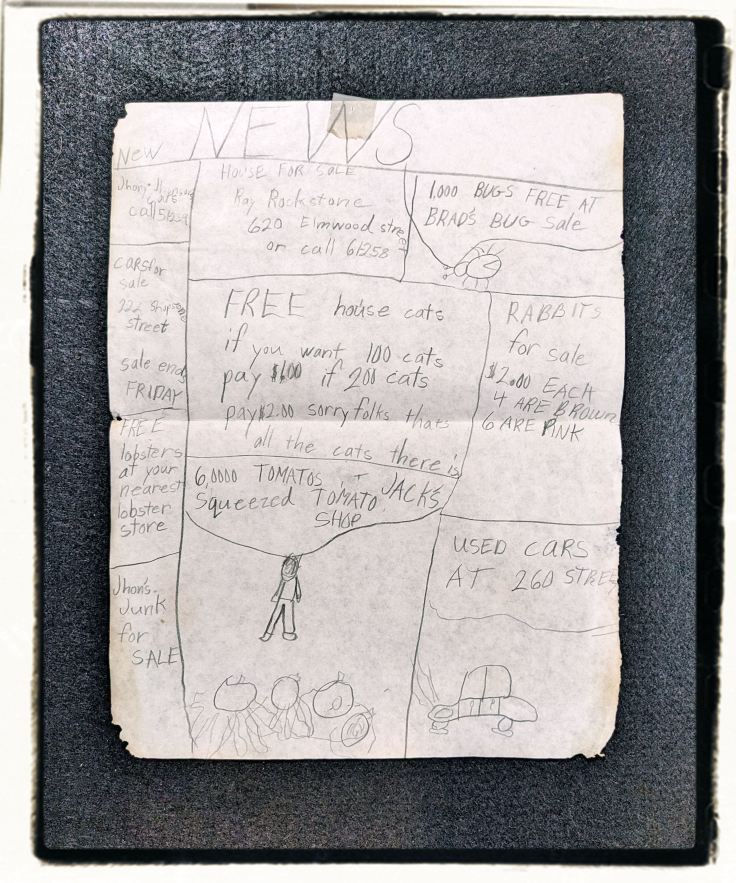 New NEWS
Jhony Jhonson
Cars
call 51239
CARS for
sale
street
sale ends
FRIDAY
FREE
lobsters
at your
nearest
lobster
store
Jhon's
Junk
for
SALE
HOUSE FOR SALE
Ray Rockstone
620 Elmwood street
or call 61258
1,000 BUGS FREE AT
BRAD'S BUG Sale
FREE house cats
if you want 100 cats
pay $1.00 if 200 cats
pay $2.00 sorry folks thats
all the cats there is
RABBITS
for sale
$2.00 EACH
4 ARE BROWN
6 ARE PINK
6,0000 TOMATOS JACK'S
Squeezed TOMATO
SHOP
USED CARS
AT 260 STREET